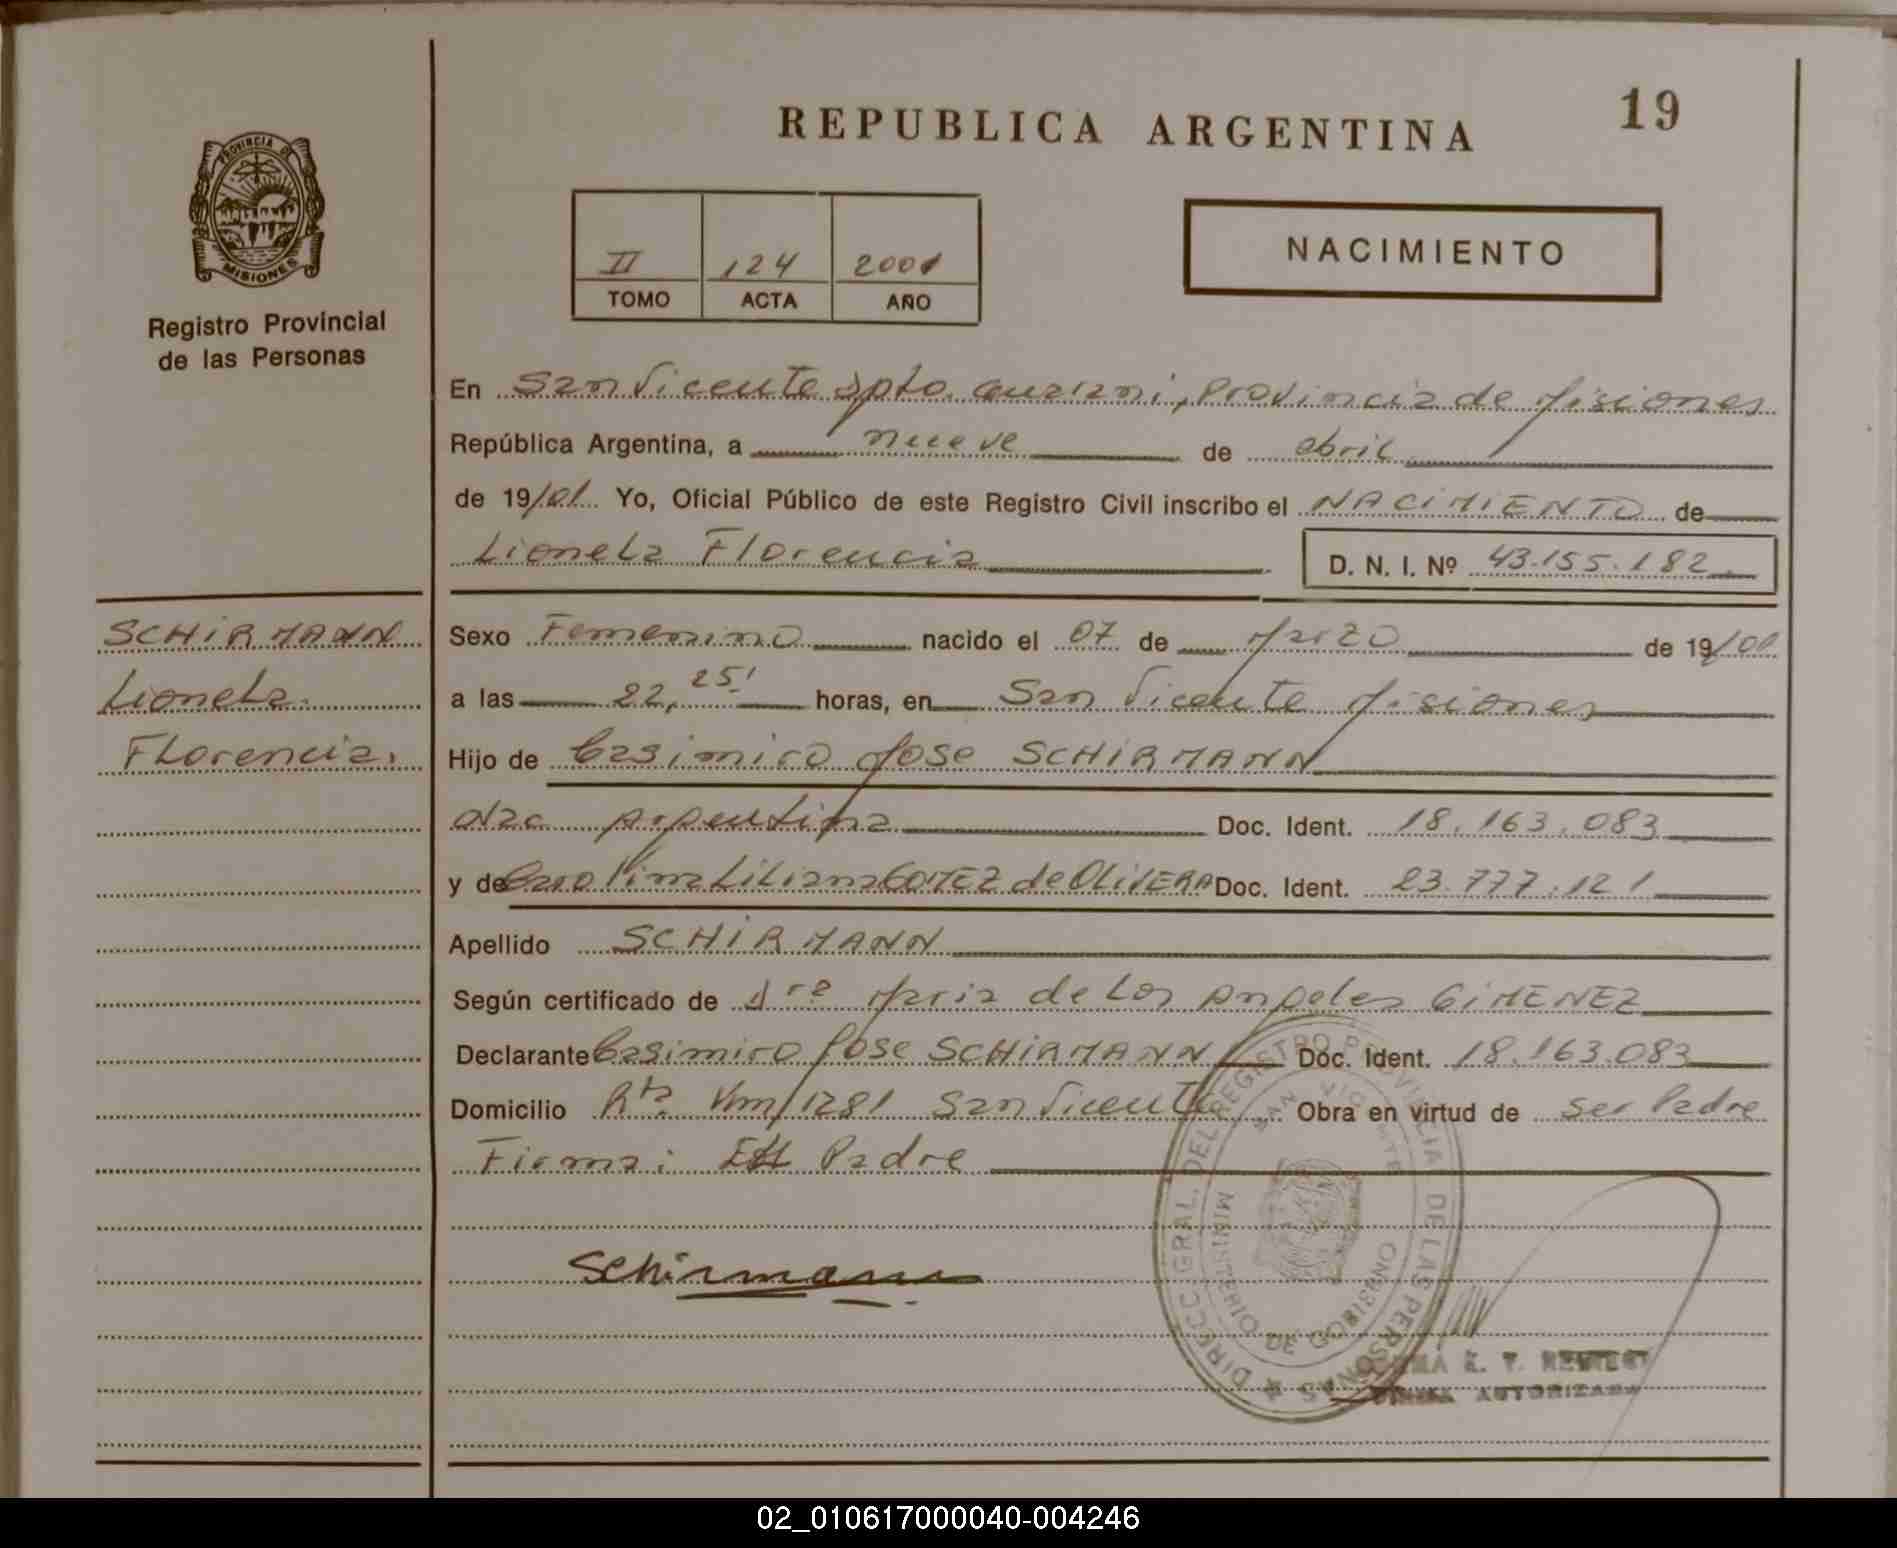 PROVINCIA DE
MISIONES
Registro Provincial
de las Personas
REPUBLICA ARGENTINA
19
II 124 2001
TOMO ACTA AÑO
NACIMIENTO
En San Vicente Dpto. Guarani, Provincia de Misiones
República Argentina, a nueve de abril
de 19/01 Yo, Oficial Público de este Registro Civil inscribo el NACIMIENTO de
Lionela Florencia D. N. I. Nº 43.155.182
SCHIRMANN
Lionela
Florencia.
Sexo Femenino nacido el 07 de Marzo de 19/01
a las 22,25' horas, en San Vicente Misiones
Hijo de Casimiro Jose SCHIRMANN
Nac Argentina Doc. Ident. 18.163.083
y de Carolina Liliana GOMEZ de OLIVERA Doc. Ident. 23.777.121
Apellido SCHIRMANN
Según certificado de Dra Maria de Los Angeles GIMENEZ
Declarante Casimiro Jose SCHIRMANN Doc. Ident. 18.163.083
Domicilio Rta. Km 1281 San Vicente Obra en virtud de ser Padre
Firma: El Padre
Schirmann
DIRECC. GRAL. DEL REGISTRO PROVINCIAL DE LAS PERSONAS
SAN VICENTE
MINISTERIO DE GOBIERNO
FIRMA AUTORIZADA
02_010617000040-004246